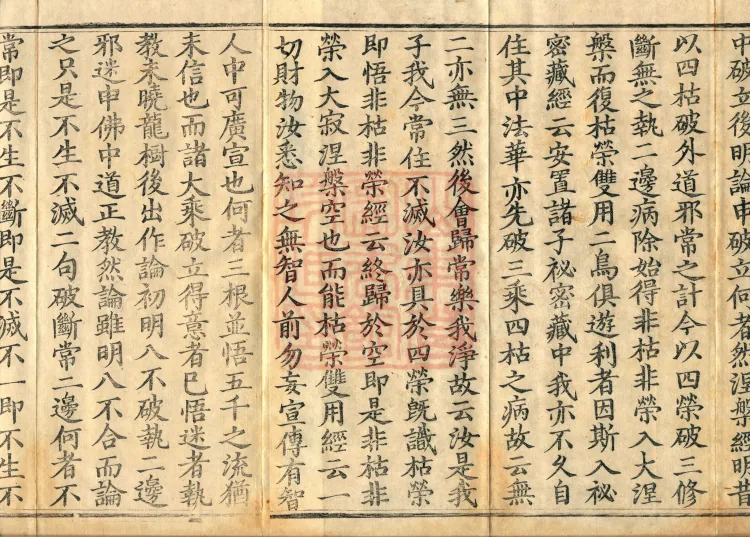 中破立後明論申破立何者然涅槃經明昔
以四枯破外道邪常之計今以四榮破三修
斷無之執二邊病除始得非枯非榮入大涅
槃而復枯榮雙用二鳥俱遊利者因斯入祕
密藏經云安置諸子祕密藏中我亦不久自
住其中法華亦先破三乘四枯之病故云無
二亦無三然後會歸常樂我淨故云汝是我
子我今常住不滅汝亦具於四榮旣識枯榮
即悟非枯非榮經云終歸於空即是非枯非
榮入大寂涅槃空也而能枯榮雙用經云一
切財物汝悉知之無智人前勿妄宣傳有智
人中可廣宣也何者三根並悟五千之流猶
未信也而諸大乘破立得意者已悟迷者執
教未曉龍樹後出作論初明八不破執二邊
邪迷申佛中道正教然論雖明八不合而論
之只是不生不滅二句破斷常二邊何者不
常即是不生不斷即是不滅不一即不生不